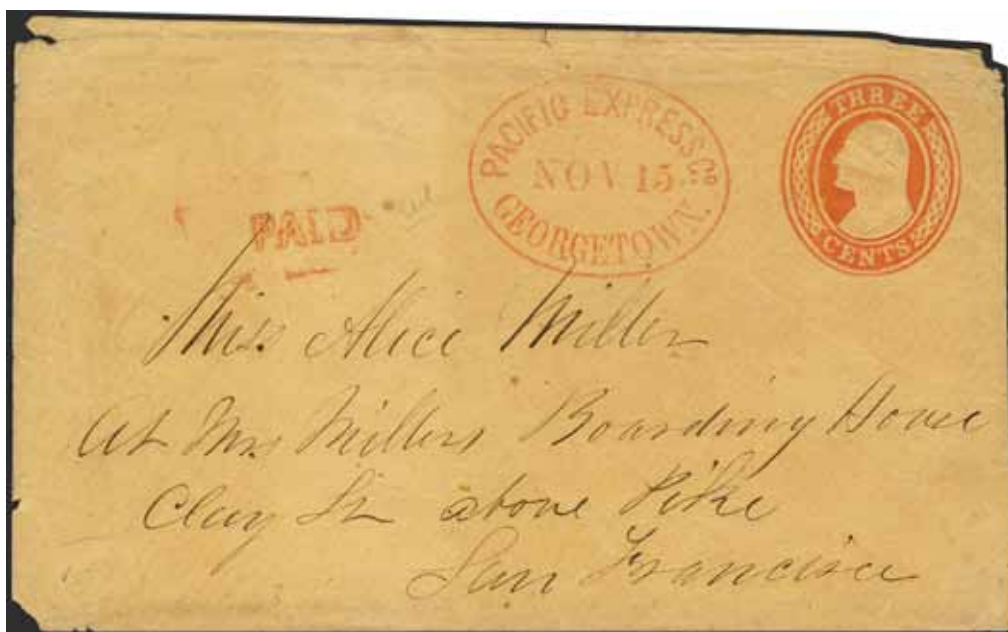 PACIFIC EXPRESS Co
NOV 15
GEORGETOWN.
THREE
CENTS
PAID
Miss Alice Miller
At Mrs Millers Boarding House
Clay St above Pike
San Francisco